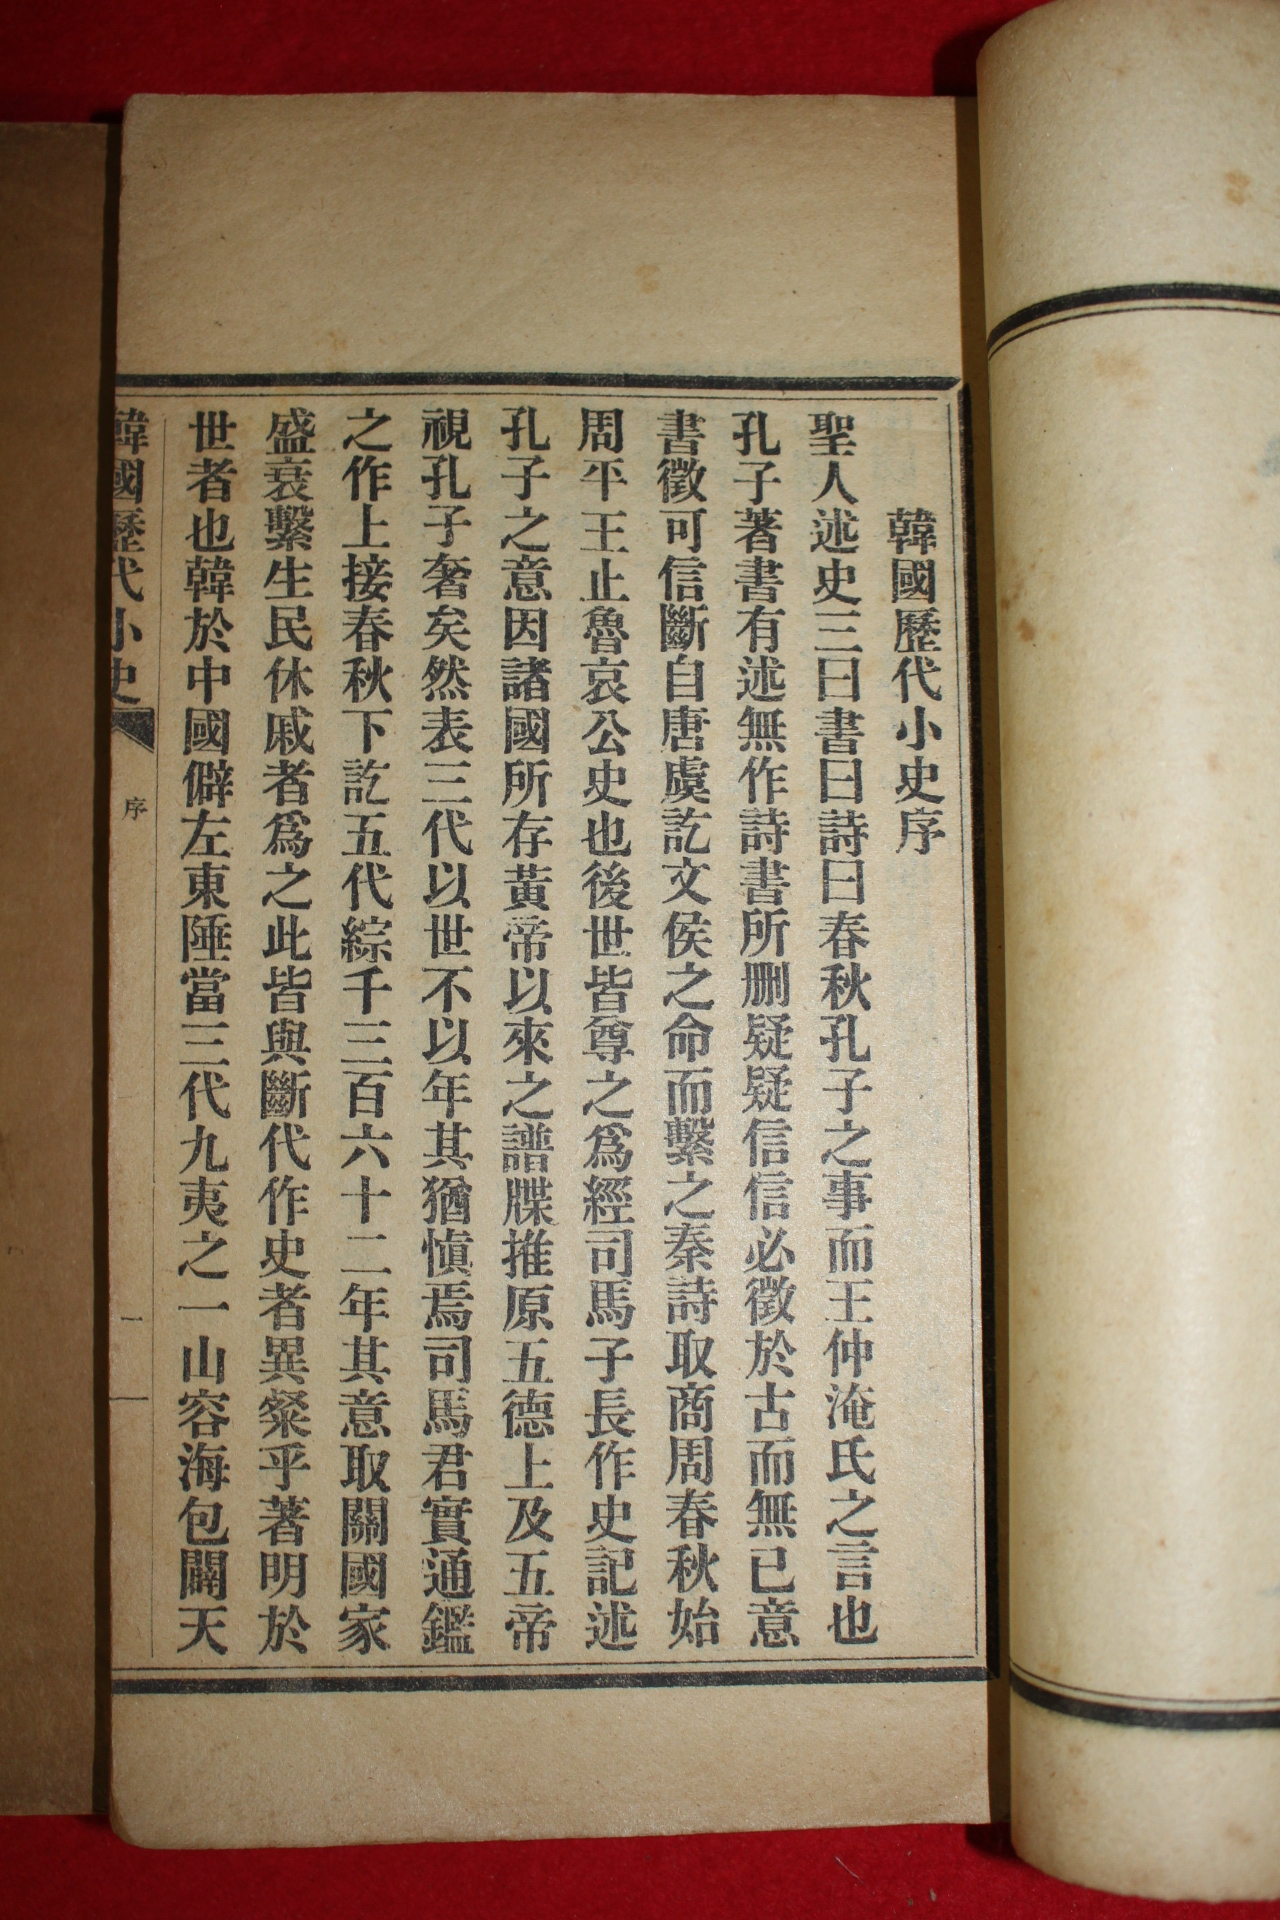 韓國歷代小史序
聖人述史三曰書曰詩曰春秋孔子之事而王仲淹氏之言也
孔子著書有述無作詩書所删疑疑信信必徵於古而無已意
書徵可信斷自唐虞訖文侯之命而繫之秦詩取商周春秋始
周平王止魯哀公史也後世皆尊之爲經司馬子長作史記述
孔子之意因諸國所存黃帝以來之譜牒推原五德上及五帝
視孔子奢矣然表三代以世不以年其猶愼焉司馬君實通鑑
之作上接春秋下訖五代綜千三百六十二年其意取關國家
盛衰繫生民休戚者爲之此皆與斷代作史者異粲乎著明於
世者也韓於中國僻左東陲當三代九夷之一山容海包闢天
韓國歷代小史
序
一